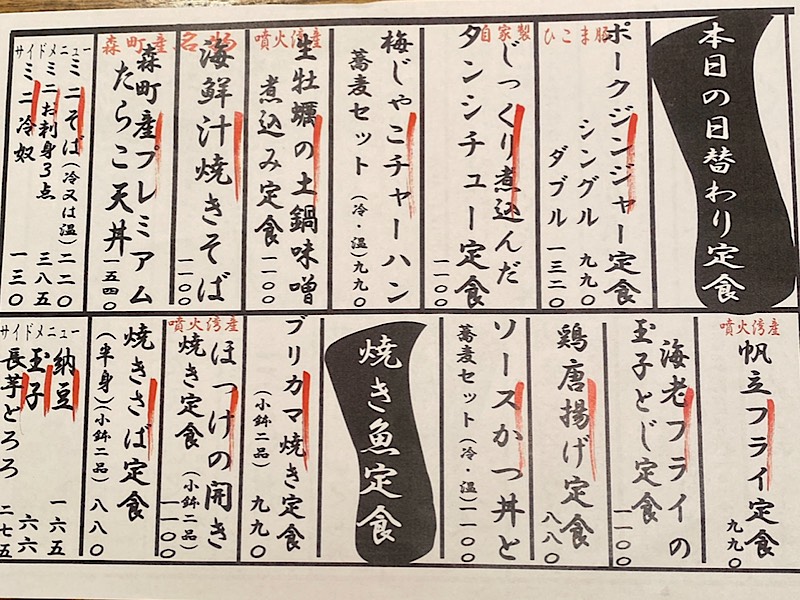 本日の日替わり定食
ひこま豚
ポークジンジャー定食
シングル 九九〇
ダブル 一三二〇
自家製
じっくり煮込んだ
タンシチュー定食
一一〇〇
梅じゃこチャーハン
蕎麦セット(冷・温)九九〇
噴火湾産
生牡蠣の土鍋味噌
煮込み定食
一一〇〇
名物
海鮮汁焼きそば
一一〇〇
森町産
森町産プレミアム
たらこ天丼
一五四〇
サイドメニュー
ミニそば(冷又は温)二二〇
ミニお刺身3点 三八五
ミニ冷奴 一三〇
噴火湾産
帆立フライ定食
九九〇
海老フライの
玉子とじ定食
一一〇〇
鶏唐揚げ定食
八八〇
ソースかつ丼と
蕎麦セット(冷・温)一一〇〇
焼き魚定食
ブリカマ焼き定食
(小鉢二品) 九九〇
噴火湾産
ほっけの開き
焼き定食(小鉢二品)
一一〇〇
焼きさば定食
(半身)(小鉢二品)八八〇
サイドメニュー
納豆 一六五
玉子 六六
長芋とろろ 二七五